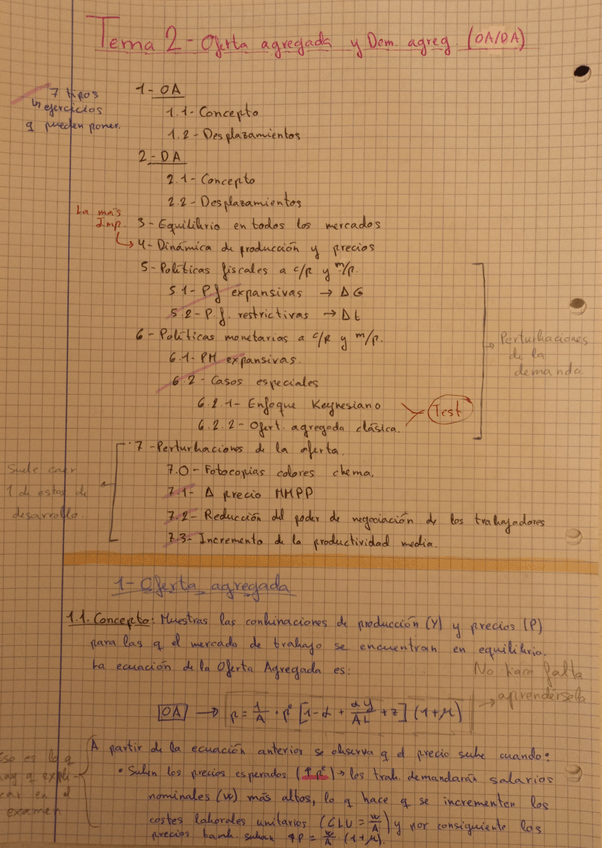 Tema 2 - Oferta agregada y Dem agreg (OA/DA)
7 tipos
ejercicios
q pueden poner.
1 - OA
1.1 - Concepto
1.2 - Desplazamientos
2 - DA
2.1 - Concepto
2.2 - Desplazamientos
La más
Imp.
3 - Equilibrio en todos los mercados
4 - Dinámica de producción y precios
5 - Políticas fiscales a c/p y m/p.
5.1 - P.f expansivas → ΔG
5.2 - P.f. restrictivas → Δt
6 - Políticas monetarias a c/p y m/p.
6.1 - PM expansivas.
6.2 - Casos especiales
6.2.1 - Enfoque Keynesiano
6.2.2 - Ofert. agregada clásica.
Test
Perturbaciones
de la
demanda
7 - Perturbaciones de la oferta.
7.0 - Fotocopias colores chema.
7.1 - Δ precio MMPP
7.2 - Reducción del poder de negociación de los trabajadores
7.3 - Incremento de la productividad media.
Suele caer
1 de estos de
desarrollo.
1 - Oferta agregada
1.1. Concepto: Muestras las conbinaciones de producción (Y) y precios (P)
para las q el mercado de trabajo se encuentran en equilibrio.
La ecuación de la Oferta Agregada es:
No hace falta
aprendérsela
OA → P = 1/A · Pᵉ [1 - α + αY/AL + z] (1+μ)
A partir de la ecuación anterior se observa q el precio sube cuando:
• Suben los precios esperados (↑Pᵉ) → los trab. demandarán salarios
nominales (w) más altos, lo q hace q se incrementen los
costes laborales unitarios (CLU = w/A) y por consiguiente los
precios tamb. suban ↑P = w/A (1+μ)
Eso es lo q
hay q expli
car en el
examen